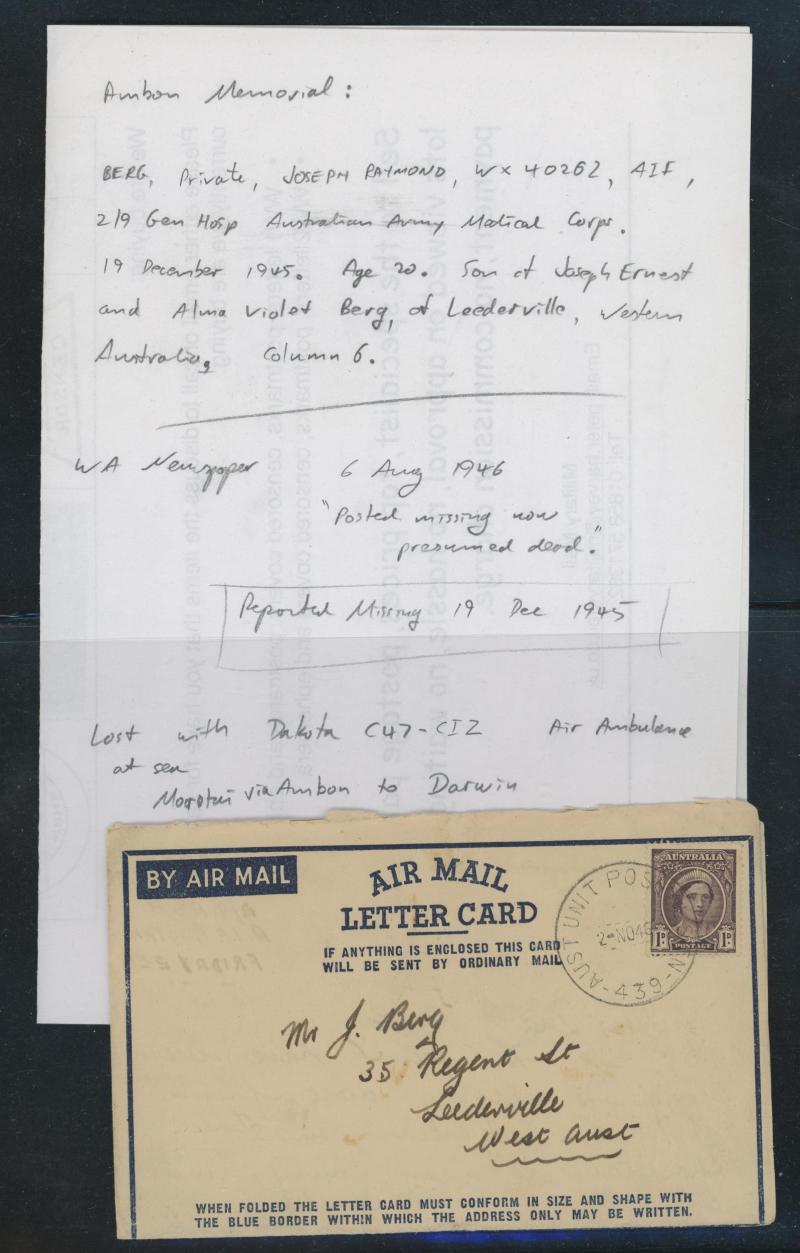 Ambon Memorial:
BERG, Private, JOSEPH RAYMOND, WX 40262, AIF,
2/9 Gen Hosp Australian Army Medical Corps.
19 December 1945. Age 20. Son of Joseph Ernest
and Alma Violet Berg, of Leederville, Western
Australia, Column 6.
WA Newspaper 6 Aug 1946
"Posted missing now
presumed dead."
Reported Missing 19 Dec 1945
Lost with Dakota C47-CIZ Air Ambulance
at sea
Morotai via Ambon to Darwin
BY AIR MAIL
AIR MAIL
LETTER CARD
IF ANYTHING IS ENCLOSED THIS CARD
WILL BE SENT BY ORDINARY MAIL
AUST UNIT POS
2-NO
-439-
AUSTRALIA
1D 1D
POSTAGE
Mr J. Berg
35 Regent St
Leederville
West Aust
WHEN FOLDED THE LETTER CARD MUST CONFORM IN SIZE AND SHAPE WITH
THE BLUE BORDER WITHIN WHICH THE ADDRESS ONLY MAY BE WRITTEN.